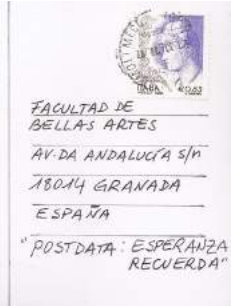 ITALIA
€0,65
FACULTAD DE
BELLAS ARTES
AV·DA ANDALUCÍA S/n
18014 GRANADA
ESPAÑA
"POSTDATA: ESPERANZA
RECUERDA"